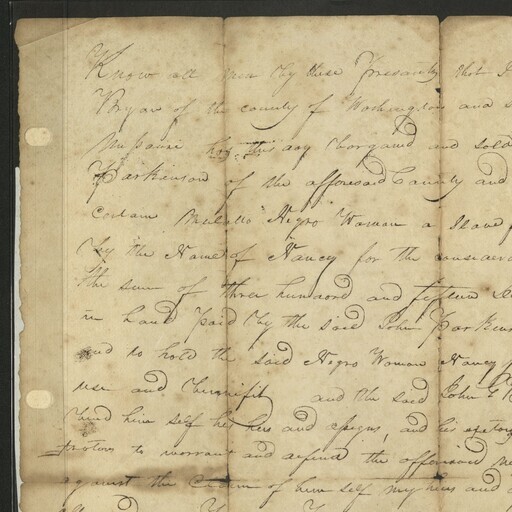 Know all men by these Presents that I
Bryan of the county of Washington and S
Missouri has this day Bargand and Sold
Parkinson of the afforesaid County and
Certain Mulatto Negro Woman a Slave f
by the Name of Nancy for the
the sum of three hundred and fifteen
in hand Paid by the said John Parkins
and to hold the said Negro Woman Nancy
use and Benifit and the said John
bind him self his heirs and assigns, and his
to warrant and defend the afforesaid Ne
against the Claim of him self my heirs and